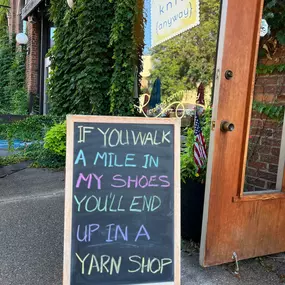 knit
(anyway)
IF YOU WALK
A MILE IN
MY SHOES
YOU'LL END
UP IN A
YARN SHOP